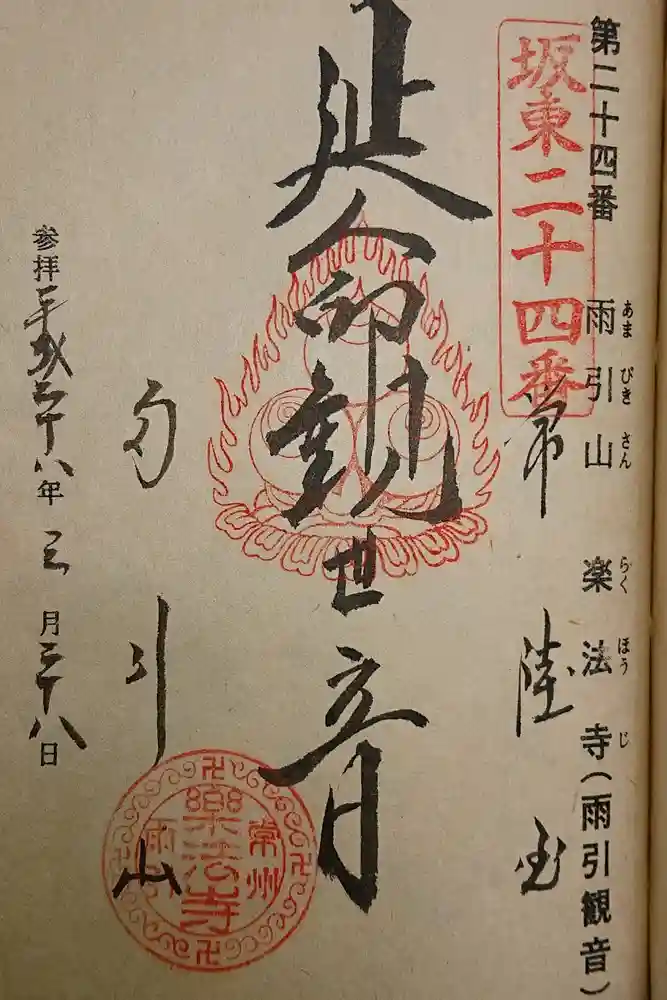 第二十四番 雨引山 楽法寺(雨引観音)
あまびきさん らくほうじ
坂東二十四番
常陸国
延命観世音
雨引山
常州
樂法寺
雨引
参拝平成二十八年三月二十八日